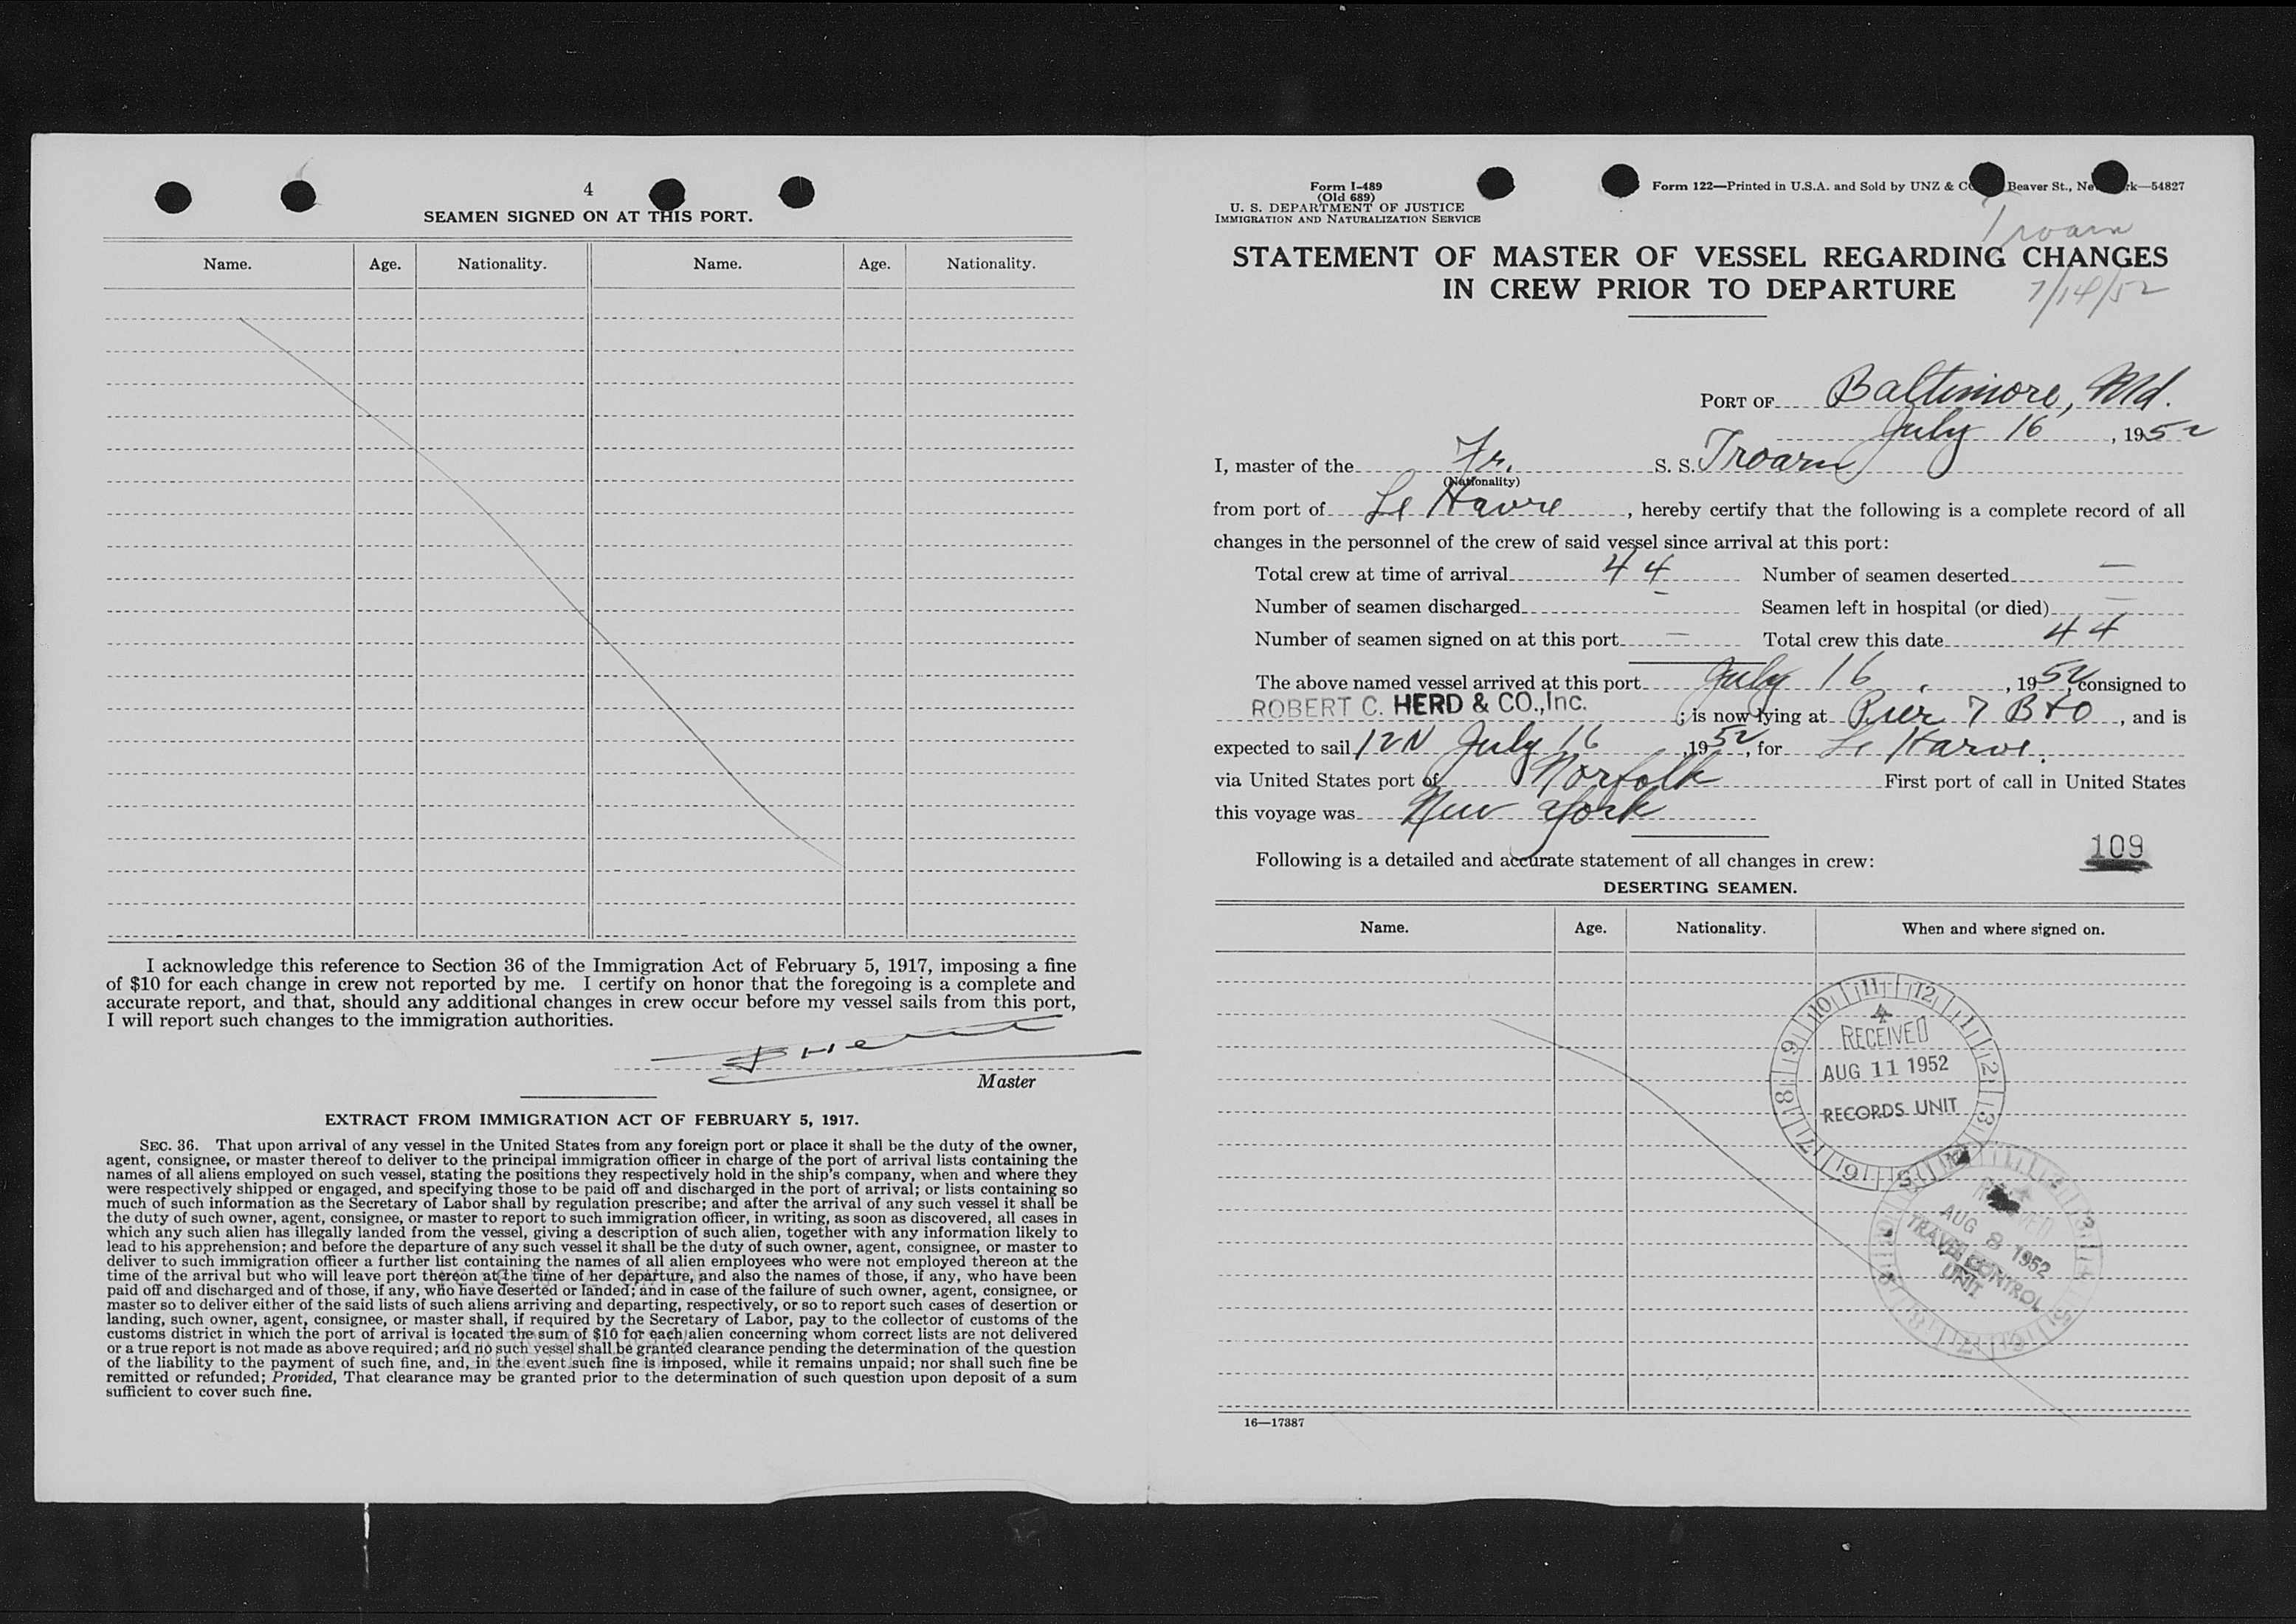 4
SEAMEN SIGNED ON AT THIS PORT.
Name. Age. Nationality. Name. Age. Nationality.
I acknowledge this reference to Section 36 of the Immigration Act of February 5, 1917, imposing a fine
of $10 for each change in crew not reported by me. I certify on honor that the foregoing is a complete and
accurate report, and that, should any additional changes in crew occur before my vessel sails from this port,
I will report such changes to the immigration authorities.
Master
EXTRACT FROM IMMIGRATION ACT OF FEBRUARY 5, 1917.
SEC. 36. That upon arrival of any vessel in the United States from any foreign port or place it shall be the duty of the owner,
agent, consignee, or master thereof to deliver to the principal immigration officer in charge of the port of arrival lists containing the
names of all aliens employed on such vessel, stating the positions they respectively hold in the ship's company, when and where they
were respectively shipped or engaged, and specifying those to be paid off and discharged in the port of arrival; or lists containing so
much of such information as the Secretary of Labor shall by regulation prescribe; and after the arrival of any such vessel it shall be
the duty of such owner, agent, consignee, or master to report to such immigration officer, in writing, as soon as discovered, all cases in
which any such alien has illegally landed from the vessel, giving a description of such alien, together with any information likely to
lead to his apprehension; and before the departure of any such vessel it shall be the duty of such owner, agent, consignee, or master to
deliver to such immigration officer a further list containing the names of all alien employees who were not employed thereon at the
time of the arrival but who will leave port thereon at the time of her departure, and also the names of those, if any, who have been
paid off and discharged and of those, if any, who have deserted or landed; and in case of the failure of such owner, agent, consignee, or
master so to deliver either of the said lists of such aliens arriving and departing, respectively, or so to report such cases of desertion or
landing, such owner, agent, consignee, or master shall, if required by the Secretary of Labor, pay to the collector of customs of the
customs district in which the port of arrival is located the sum of $10 for each alien concerning whom correct lists are not delivered
or a true report is not made as above required; and no such vessel shall be granted clearance pending the determination of the question
of the liability to the payment of such fine, and, in the event such fine is imposed, while it remains unpaid; nor shall such fine be
remitted or refunded; Provided, That clearance may be granted prior to the determination of such question upon deposit of a sum
sufficient to cover such fine.
Form I-489
(Old 689)
U. S. DEPARTMENT OF JUSTICE
IMMIGRATION AND NATURALIZATION SERVICE
Form 122—Printed in U.S.A. and Sold by UNZ & Beaver St., —54827
Troarn
STATEMENT OF MASTER OF VESSEL REGARDING CHANGES
IN CREW PRIOR TO DEPARTURE
7/14/52
PORT OF Baltimore, Md.
July 16, 1952
I, master of the Fr. S. S. Troarn
(Nationality)
from port of Le Havre, hereby certify that the following is a complete record of all
changes in the personnel of the crew of said vessel since arrival at this port:
Total crew at time of arrival 44 Number of seamen deserted —
Number of seamen discharged — Seamen left in hospital (or died) —
Number of seamen signed on at this port — Total crew this date 44
The above named vessel arrived at this port July 16, 1952, consigned to
ROBERT C. HERD & CO., Inc. ; is now lying at Pier 7 B&O, and is
expected to sail 12N July 16 1952, for Le Harve.
via United States port of Norfolk First port of call in United States
this voyage was New York
109
Following is a detailed and accurate statement of all changes in crew:
DESERTING SEAMEN.
Name. Age. Nationality. When and where signed on.
10 11 12 1 2 3 4 5 6 7 8 9
RECEIVED
AUG 11 1952
RECORDS UNIT
RECEIVED
AUG 8 1952
TRAVEL CONTROL
UNIT
16—17387